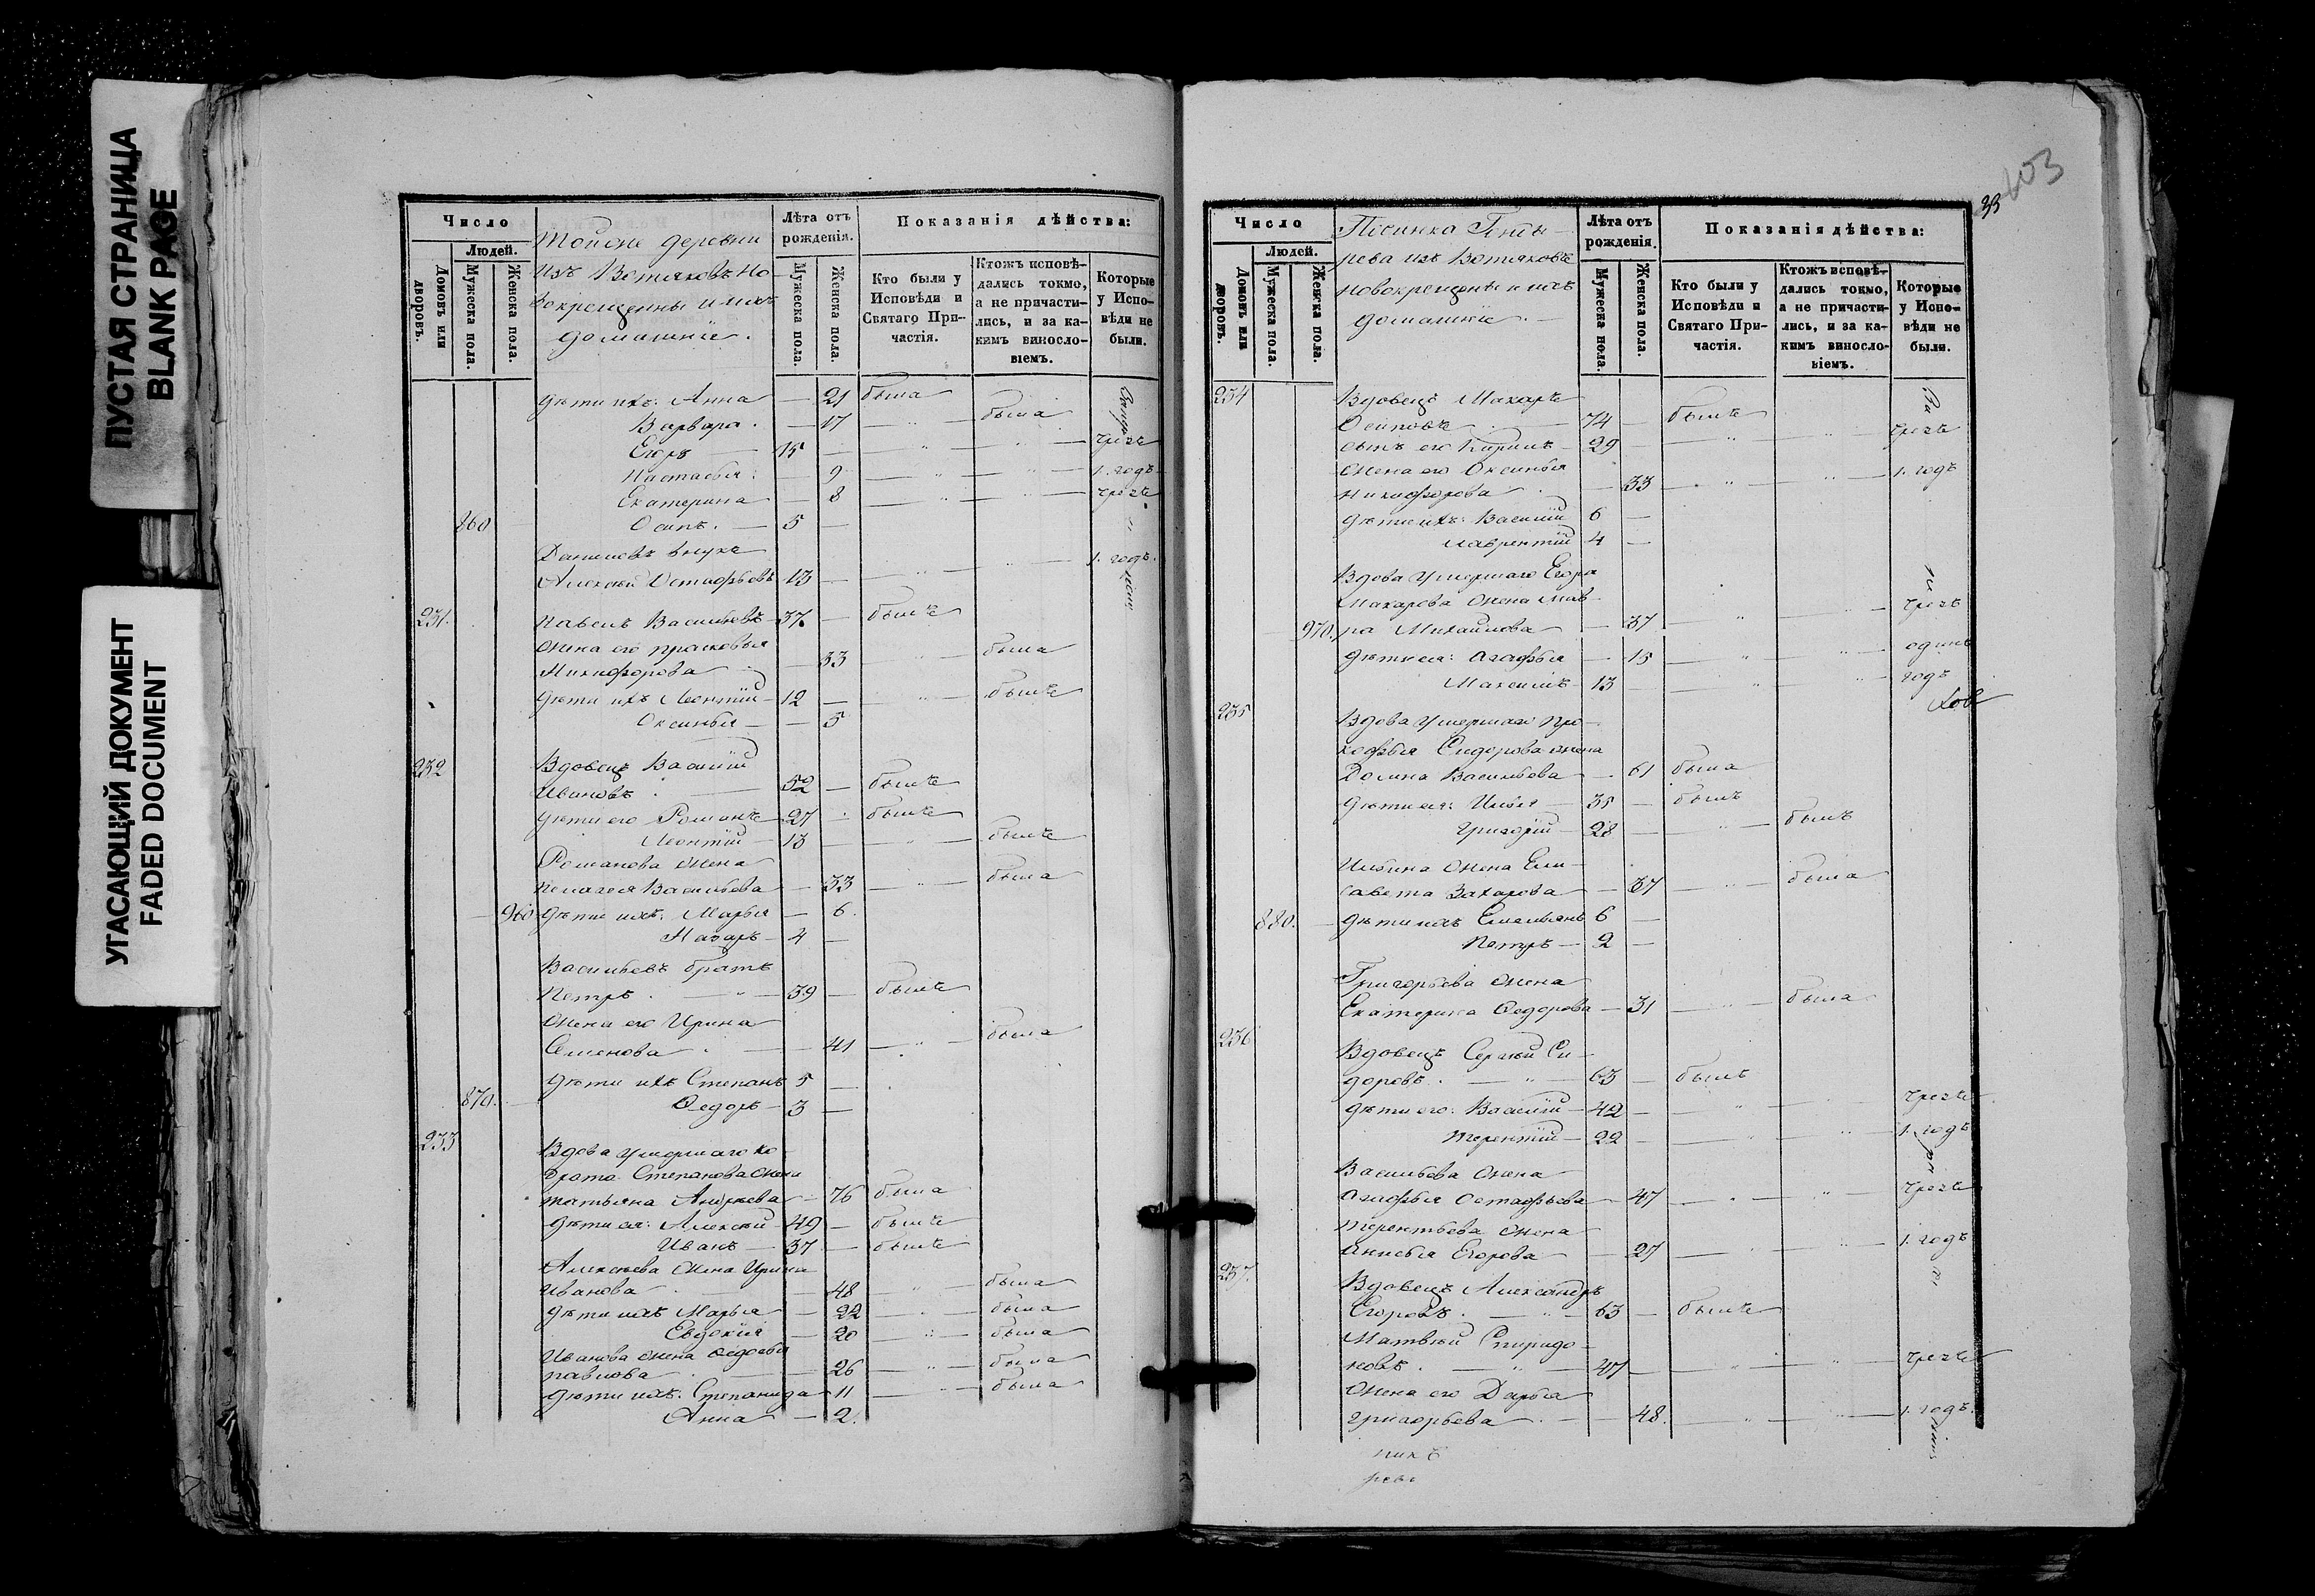 ПУСТАЯ СТРАНИЦА
BLANK PAGE
УГАСАЮЩИЙ ДОКУМЕНТ
FADED DOCUMENT
Число
Людей.
Домовъ или дворовъ.
Мужеска пола.
Женска пола.
Тойже деревни
изъ Вотяковъ но-
вокрещенны и ихъ
домашніе.
Лѣта отъ рожденія.
Мужеска пола.
Женска пола.
Показанія дѣйства:
Кто были у Исповѣди и Святаго При-частія.
Ктожъ исповѣ-дались токмо, а не причасти-лись, и за ка-кимъ виносло-віемъ.
Которые у Испо-вѣди не были.
дѣти ихъ: Анна — 21 была
Варвара — 17 — была
Егоръ 15 — чрезъ
Настасья — 9 — 1. годъ
Екатерина — 8 — чрезъ
860 Осипъ. — 5 —
Даниловъ внукъ
Алексѣй Остафьевъ 13 — 1. годъ.
231. Павелъ Васильевъ 37 — былъ
жена его Прасковья
Никифорова — 33 — была
дѣти ихъ Леонтій 12 — былъ
Оксинья — 5
232 Вдовецъ Василій
Ивановъ 52 — былъ
дѣти его Романъ 27 — былъ
Леонтій 13 — былъ
Романова жена
Пелагея Васильева — 33 — была
960 дѣти ихъ: Марья — 6.
Назаръ 4 —
Васильевъ братъ
Петръ 39 — былъ
жена его Ирина
Семенова — 41 — была
дѣти ихъ Степанъ 5 —
870. Ѳедоръ 3 —
233 Вдова умершаго Ко-
драта Степанова жена
Татьяна Андреева — 76 была
дѣти ея: Алексѣй 49 — былъ
Иванъ 37 — былъ
Алексѣева жена Ирина
Иванова — 48 — была
дѣти ихъ Марья — 22 — была
Евдокія — 20 — была
Иванова жена Ѳедосья
Павлова — 26 — была
дѣти ихъ: Степанида — 11 — была
Анна — 2.
103
33
Число
Людей.
Домовъ или дворовъ.
Мужеска пола.
Женска пола.
рева изъ Вотяковъ
новокрещены и ихъ
домашніе.
Лѣта отъ рожденія.
Мужеска пола.
Женска пола.
Показанія дѣйства:
Кто были у Исповѣди и Святаго При-частія.
Ктожъ исповѣ-дались токмо, а не причасти-лись, и за ка-кимъ виносло-віемъ.
Которые у Испо-вѣди не были.
234 Вдовецъ Макаръ
Осиповъ 74 — былъ
сынъ его Кирилъ 29 — чрезъ
жена его Оксинья
Никифорова — 33 — 1. годъ
дѣти ихъ: Василій 6 —
Лаврентій 4 —
Вдова умершаго Егора
Макарова жена Мав-
970. ра Михайлова — 37 — чрезъ
дѣти ея: Агафья — 15 — одинъ
Максимъ 13 — годъ
235 Вдова умершаго Про-
кофья Сидорова жена
Домна Васильева — 61 была
дѣти ея: Илья 35 — былъ
Григорій 28 — былъ
Ильина жена Ели-
савета Захарова — 37 — была
880. дѣти ихъ Емельянъ 6 —
Петръ 2 —
Григорьева жена
Екатерина Ѳедорова — 31 — была
236 Вдовецъ Сергѣй Си-
доровъ. 63 — былъ
дѣти его: Василій 42 — чрезъ
Терентій 22 — 1. годъ
Васильева жена
Агафья Остафьева — 47 — чрезъ
Терентьева жена
Анисья Егорова — 27 — 1. годъ
237. Вдовецъ Александръ
Егоровъ. 63 — былъ
Матвѣй Спиридо-
новъ. 47 — чрезъ
жена его Дарья
Григорьева — 48. — 1. годъ.